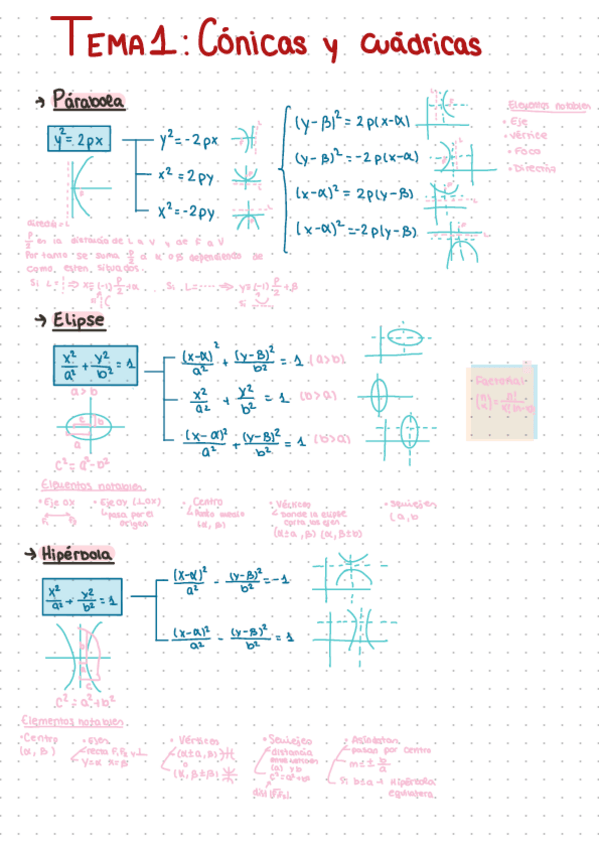 TEMA 1: Cónicas y cuádricas
→ Párabola
y² = 2px
y² = -2px
x² = 2py
x² = -2py
(y-β)² = 2p(x-α)
(y-β)² = -2p(x-α)
(x-α)² = 2p(y-β)
(x-α)² = -2p(y-β)
Elementos notables
• Eje
• Vértice
• Foco
• Directriz
p/2 es la distancia de L a V y de F a V
Por tanto se suma p/2 a α o β dependiendo de
como esten situados.
→ Elipse
x²/a² + y²/b² = 1
a > b
c² = a² - b²
(x-α)²/a² + (y-β)²/b² = 1 (a>b)
x²/a² + y²/b² = 1 (b>a)
(x-α)²/a² + (y-β)²/b² = 1 (b>a)
Factorial
Elementos notables
• Eje ox
• Eje ox (Lox)
pasa por el
origen
• Centro
Punto medio
(α, β)
• Vértices
Donde la elipse
corta sus ejes
(α±a, β) (α, β±b)
• Semiejes
(a, b
→ Hipérbola
x²/a² + y²/b² = 1
c² = a² + b²
(x-α)²/a² - (y-β)²/b² = -1
(x-α)²/a² - (y-β)²/b² = 1
Elementos notables
• Centro
(α, β)
• Ejes
y=α x=β
• Vértices
(α±a, β)
o
(α, β±b)
• Semiejes
distancia
c² = a² + b²
• Asíntotas
pasan por centro
m = ± b/a
Si b=a → Hipérbola
equilátera.